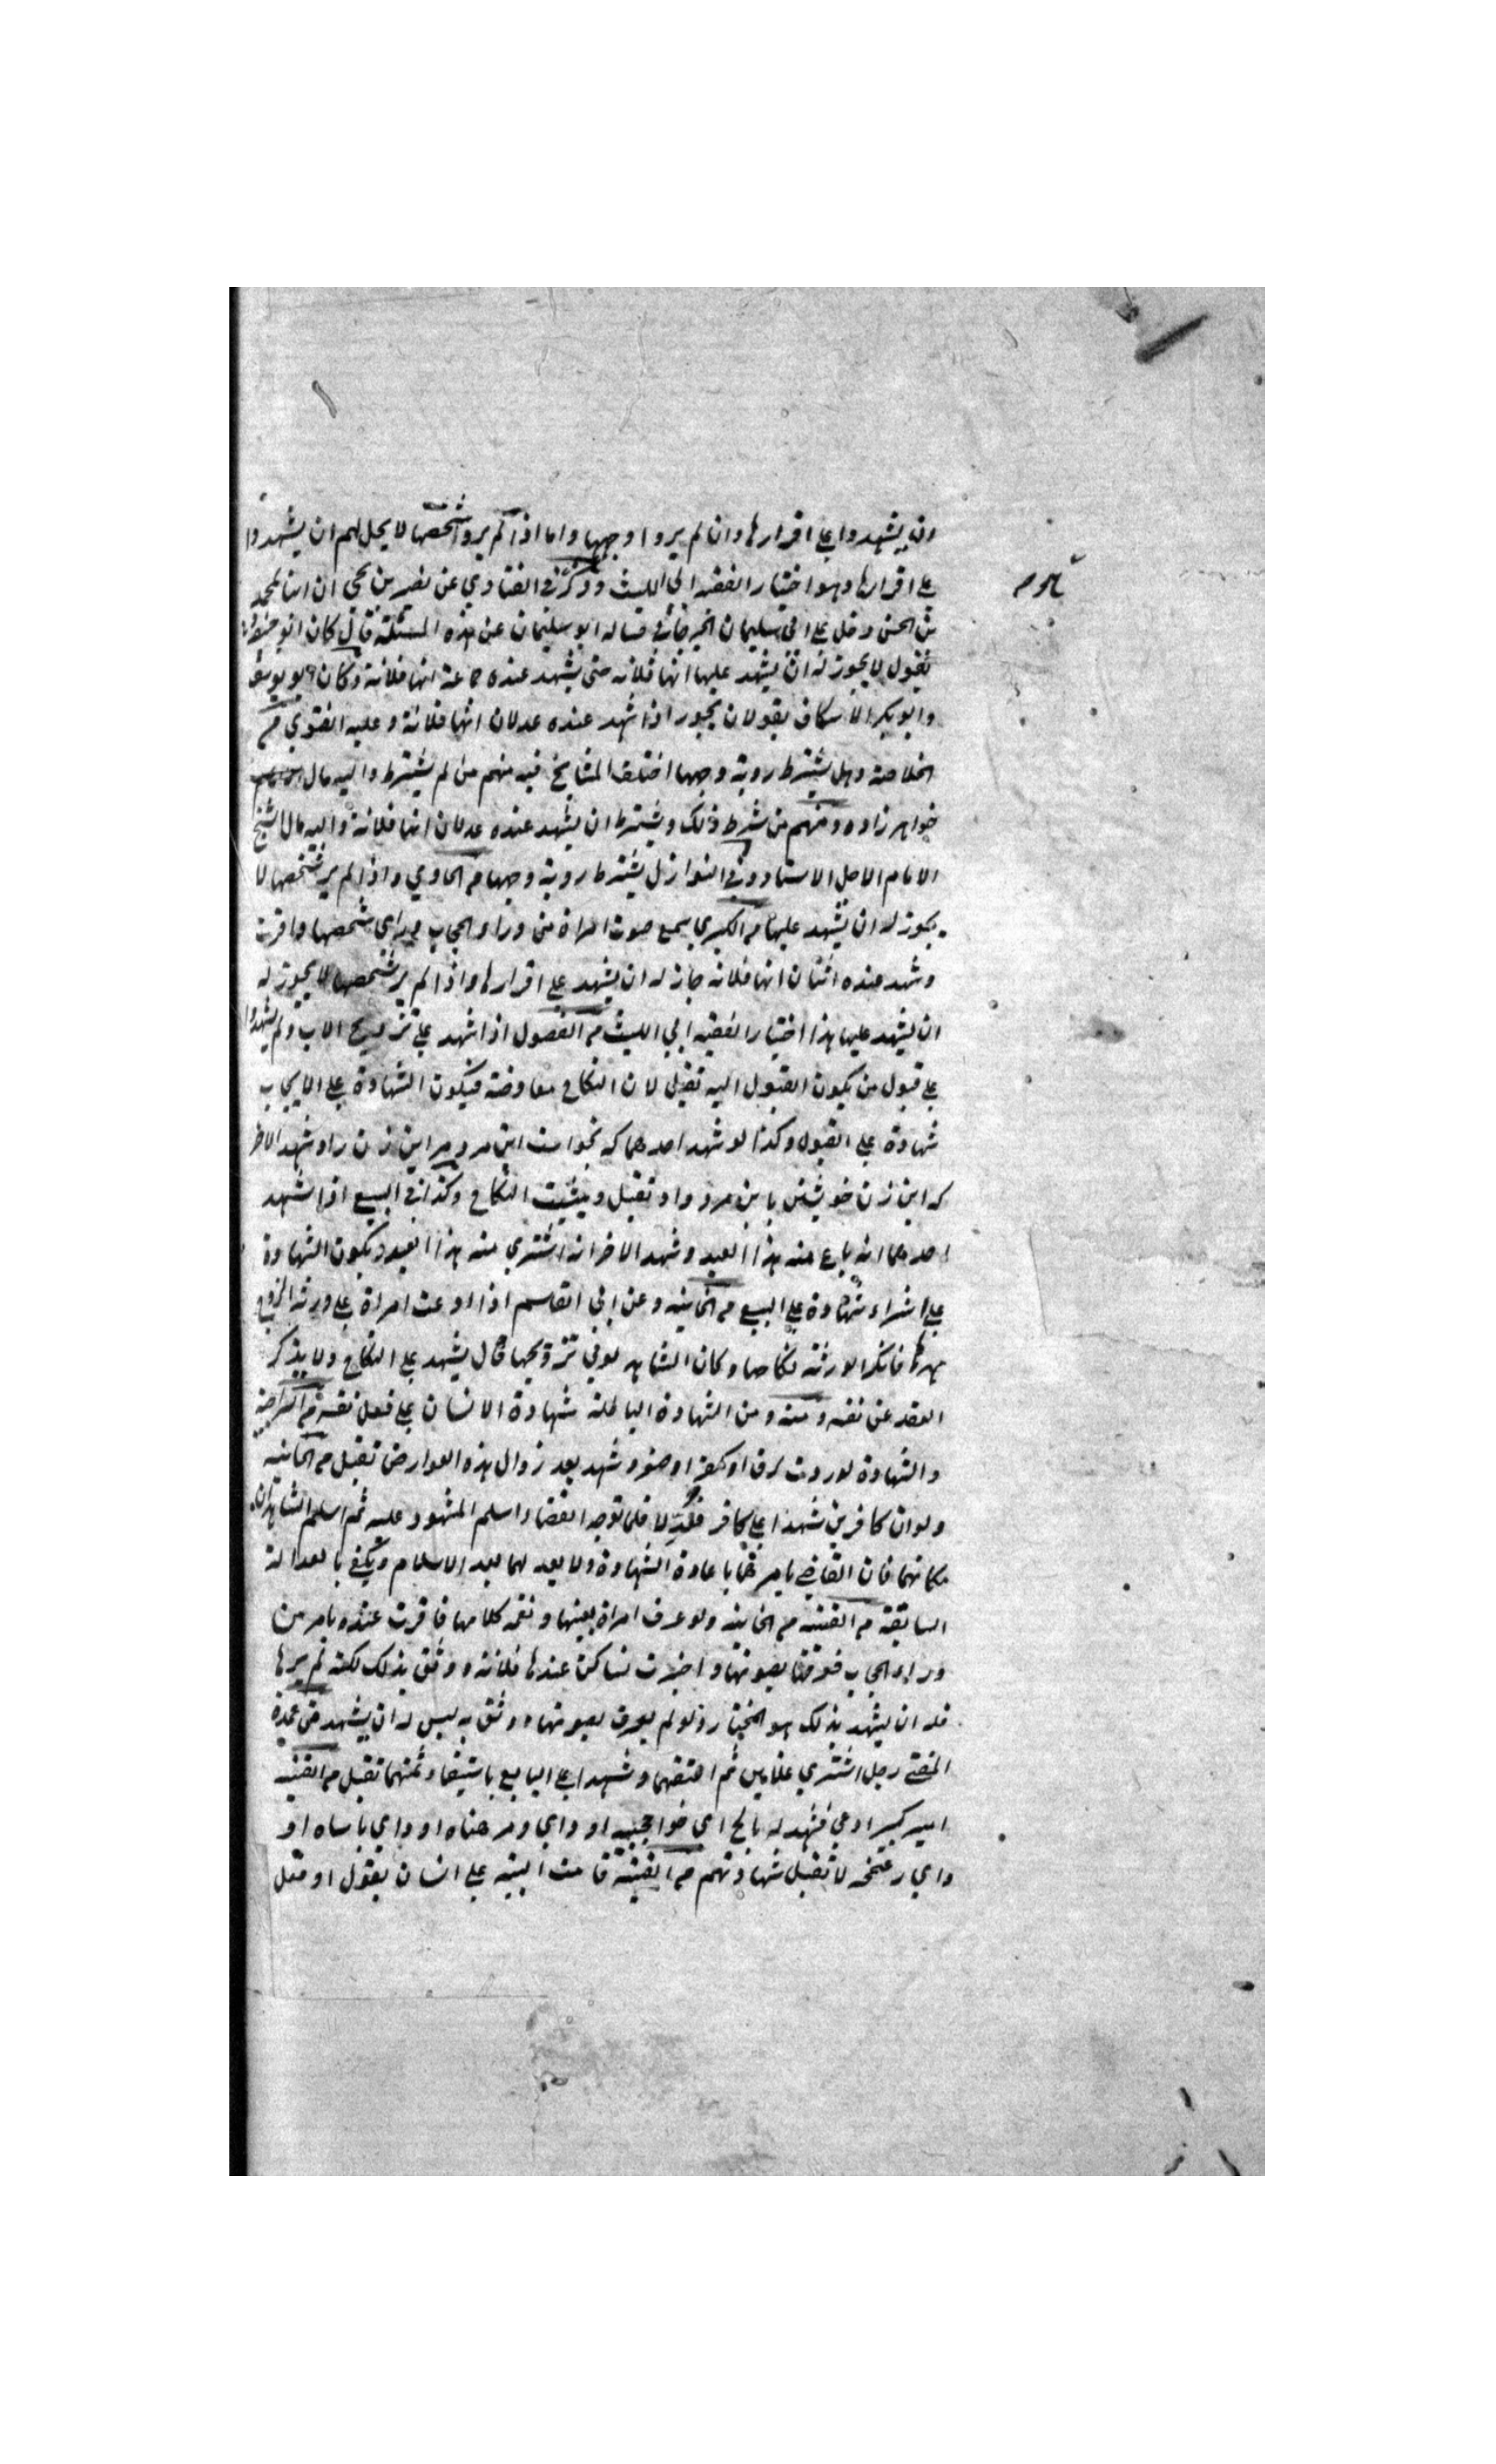 ان يشهدوا على اقرارها وان لم يروا وجهها واما اذا لم يروا شخصها لا يحل لهم ان يشهدوا
على اقرارها وهو اختيار الفقيه ابي الليث وذكر في الفتاوي عن نصر بن يحيى ان ابنا لمحمد
بن الحسن دخل على ابي سليمان الجوزجاني فساله ابو سليمان عن هذه المسئلة قال كان ابو حنيفة
يقول لا يجوز له ان يشهد عليها انها فلانه حتى يشهد عنده جماعة انها فلانة وكان ابو يوسف
وابو بكر الاسكاف يقولان يجوز اذا شهد عنده عدلان انها فلانة وعليه الفتوي م
الخلاصة وهل يشترط روية وجهها اختلف المشايخ فيه منهم من لم يشترط واليه مال
خواهر زاده ومنهم من شرط ذلك ويشترط ان يشهد عنده عدلان انها فلانة واليه مال الشيخ
الامام الاجل الاستاد وفي النوازل يشترط روية وجهها م الحاوي واذا لم ير شخصها لا
يجوز له ان يشهد عليها م الكبري سمع صوت امراة من وراء الحجاب وراي شخصها واقرت
وشهد عنده اثنان انها فلانه جاز له ان يشهد على اقرارها واذا لم ير شخصها لا يجوز له
ان يشهد عليها هذا اختيار الفقيه ابي الليث م الفصول اذا شهد على تزويج الاب ولم يشهدوا
على قبول من يكون القبول اليه تقبل لان النكاح معاوضة فيكون الشهادة على الايجاب
شهادة على القبول وكذا لو شهد احدهما كه بخواست اين مرد مر اين زن را وشهد الاخر
كه اين زن خويشتن باين مرد داد تقبل ويثبت النكاح وكذا في البيع اذا شهد
احدهما انه باع منه هذا العبد وشهد الاخر انه اشتري منه هذا العبد ويكون الشهادة
على الشراء شهادة على البيع م الخانيه وعن ابي القاسم اذا ادعت امراة على ورثه الزوج
مهرها فانكر الورثة نكاحها وكان الشاهد تزويجها قال يشهد على النكاح ولا يذكر
العقد عن نفسه ومنه ومن الشهادة الباطلة شهادة الانسان على فعل نفسه م
والشهادة لو ردت لرق او كفر او صغر وشهد بعد زوال هذه العوارض تقبل م الخانيه
ولو ان كافرين شهدا على كافر فلما توجه القضاء اسلم المشهود عليه ثم اسلم الشاهدان
مكانهما فان القاضي يامرهما باعادة الشهادة ولا بعد الاسلام ويكفي بالعدالة
السابقة م القنيه م الخانيه ولو عرف امراة بعينها ونغمه كلامها فاقرت عنده بامر من
وراء الحجاب فعرفها بصوتها واخبرت نسا كن عندها فلانه ووثق بذلك لكنه لم يرها
فله ان يشهد بذلك هو المختار ولو لم يعرف بصوتها ووثق به ليس له ان يشهد من عمدة
المفتي رجل اشتري غلامين ثم اعتقهما وشهدا على البايع باستيفاء ثمنهما تقبل م القنيه
امير كبير ادعى فشهد له اي او او
لا تقبل شهادتهم م القنية قامت البينة على انسان بقول او فعل